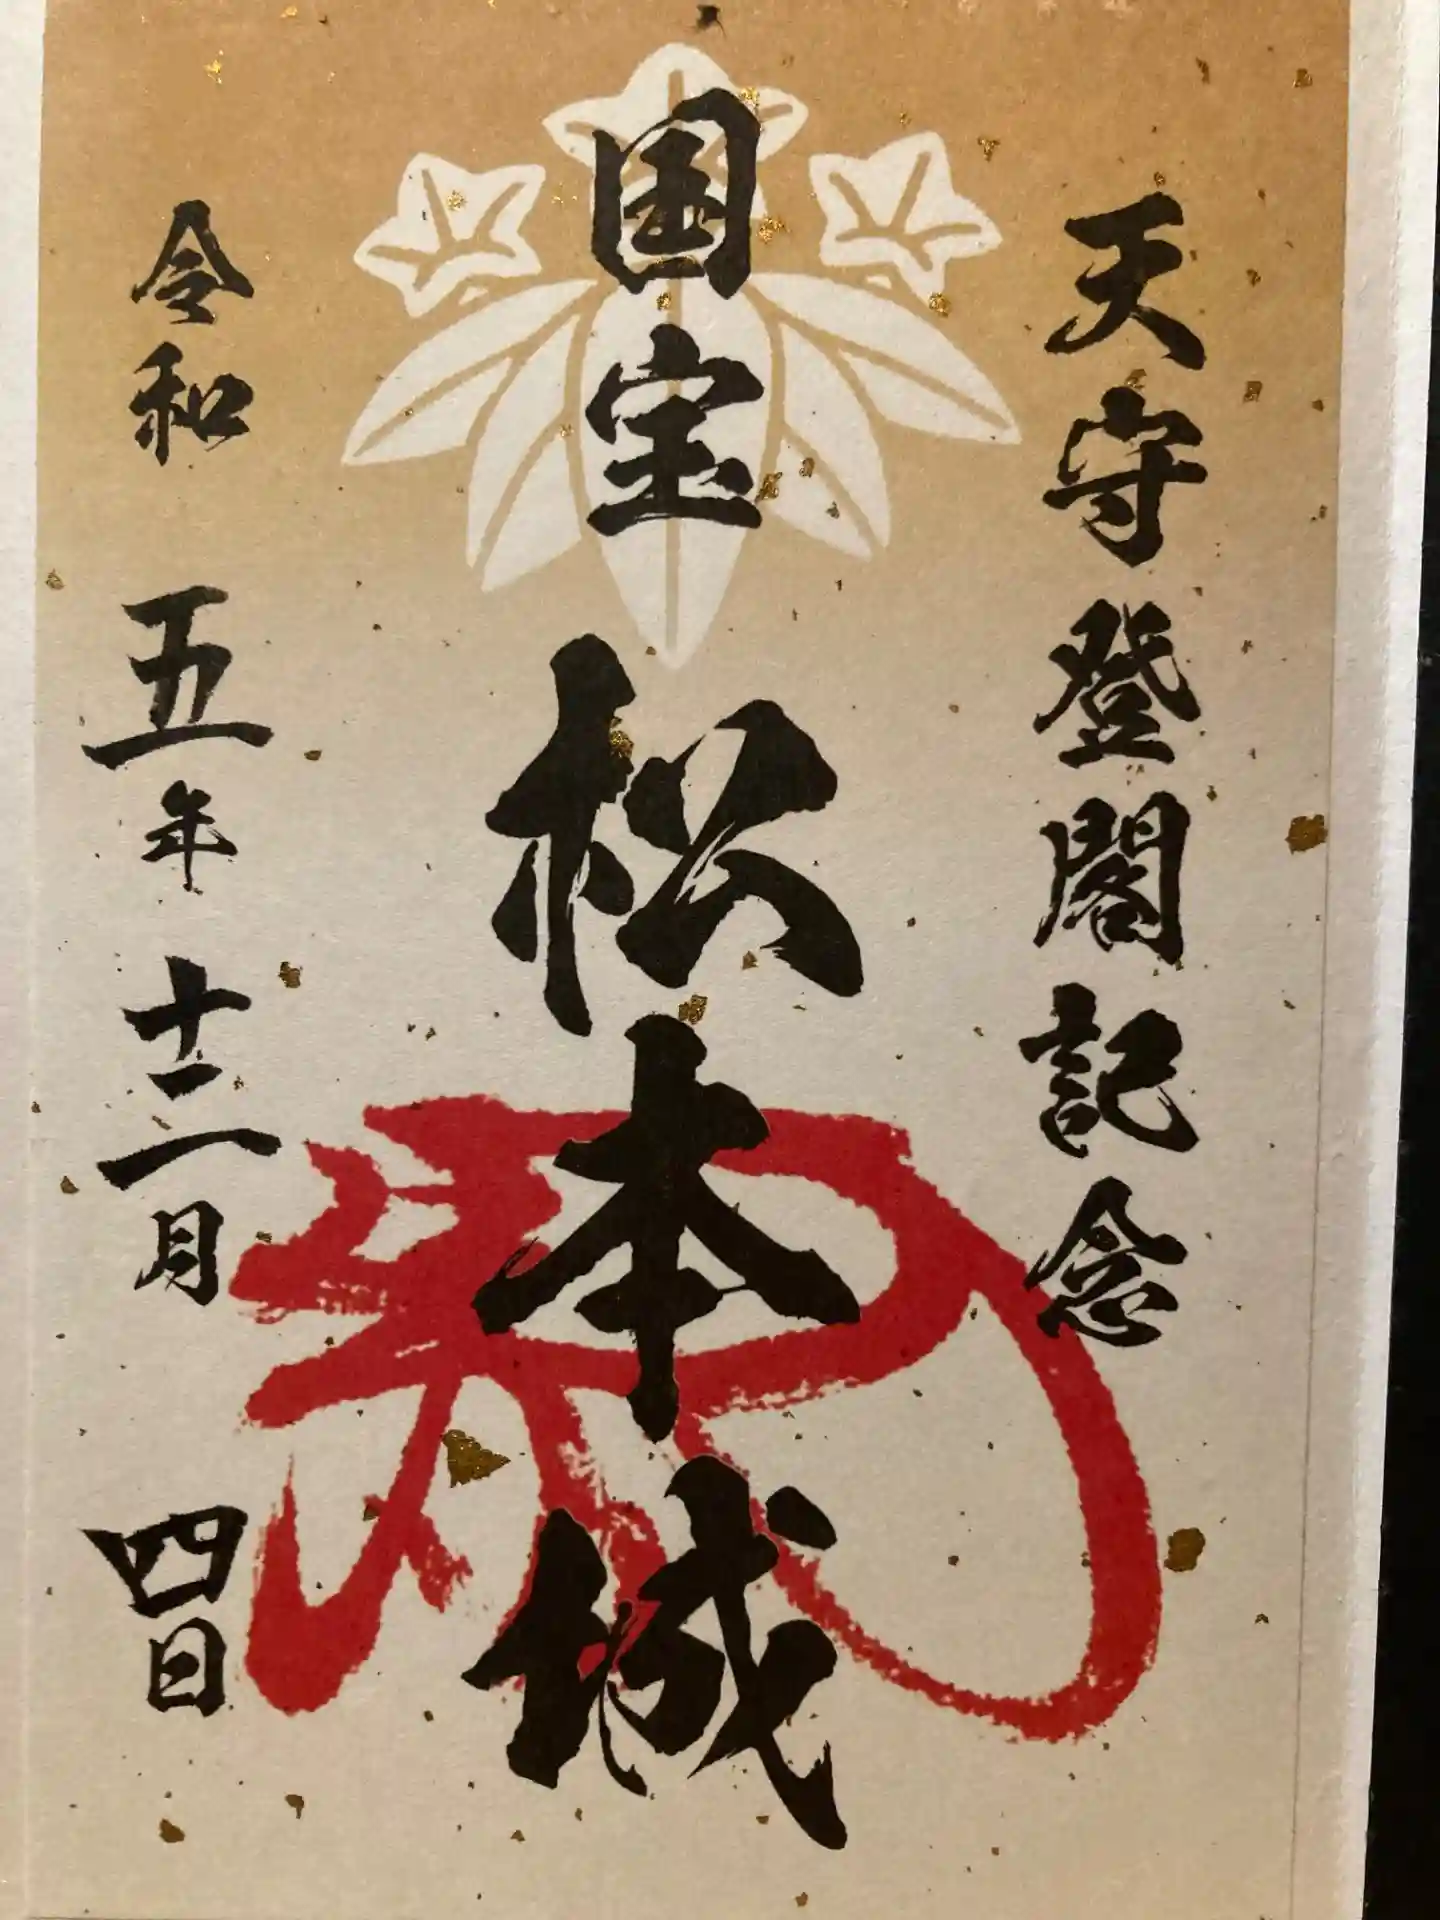 天守登閣記念
国宝 松本城
令和五年十二月 四日